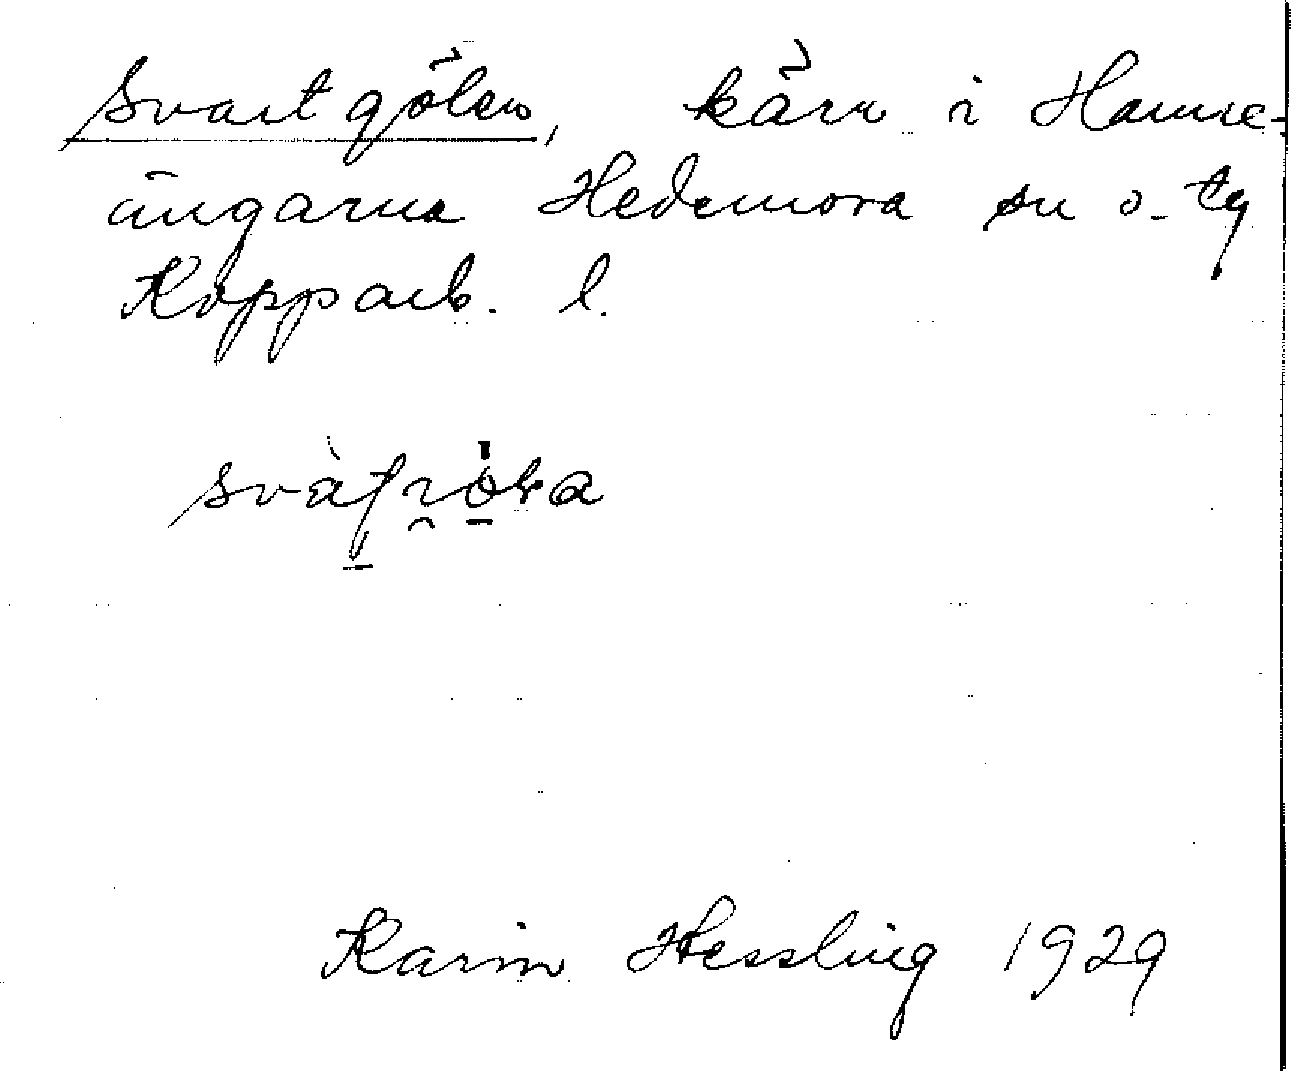 Svartgölen, kärr i Hamre-
ängarna Hedemora sn o. tg
Kopparb. l.
Karin Hessling 1929